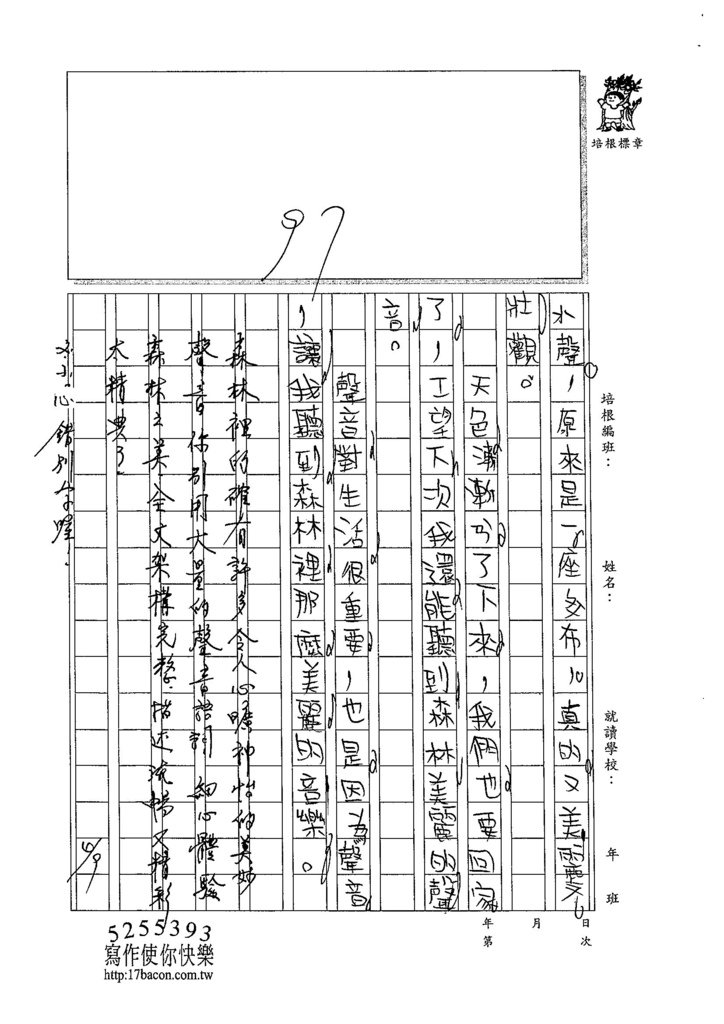 培根標章
97
培根編班：
姓名：
就讀學校：
年
班
日
次
月
年
第
水聲，原來是一座
布，真的又美
壯觀。
天色漸漸
了下來，我們也要回家
了，
望下次我還能聽到森林美麗的聲
音。
聲音對生活很重要，也是因為聲音
，讓我聽到森林裡那麼美麗的音樂。
森林裡的確有許多令人心曠神怡的美妙
聲音你引用大量的聲音語詞，細心體驗
森林之美，全文架構完整，描述流暢又精彩
太精典了。
小心錯別字喔！
5255393
寫作使你快樂
http:17bacon.com.tw